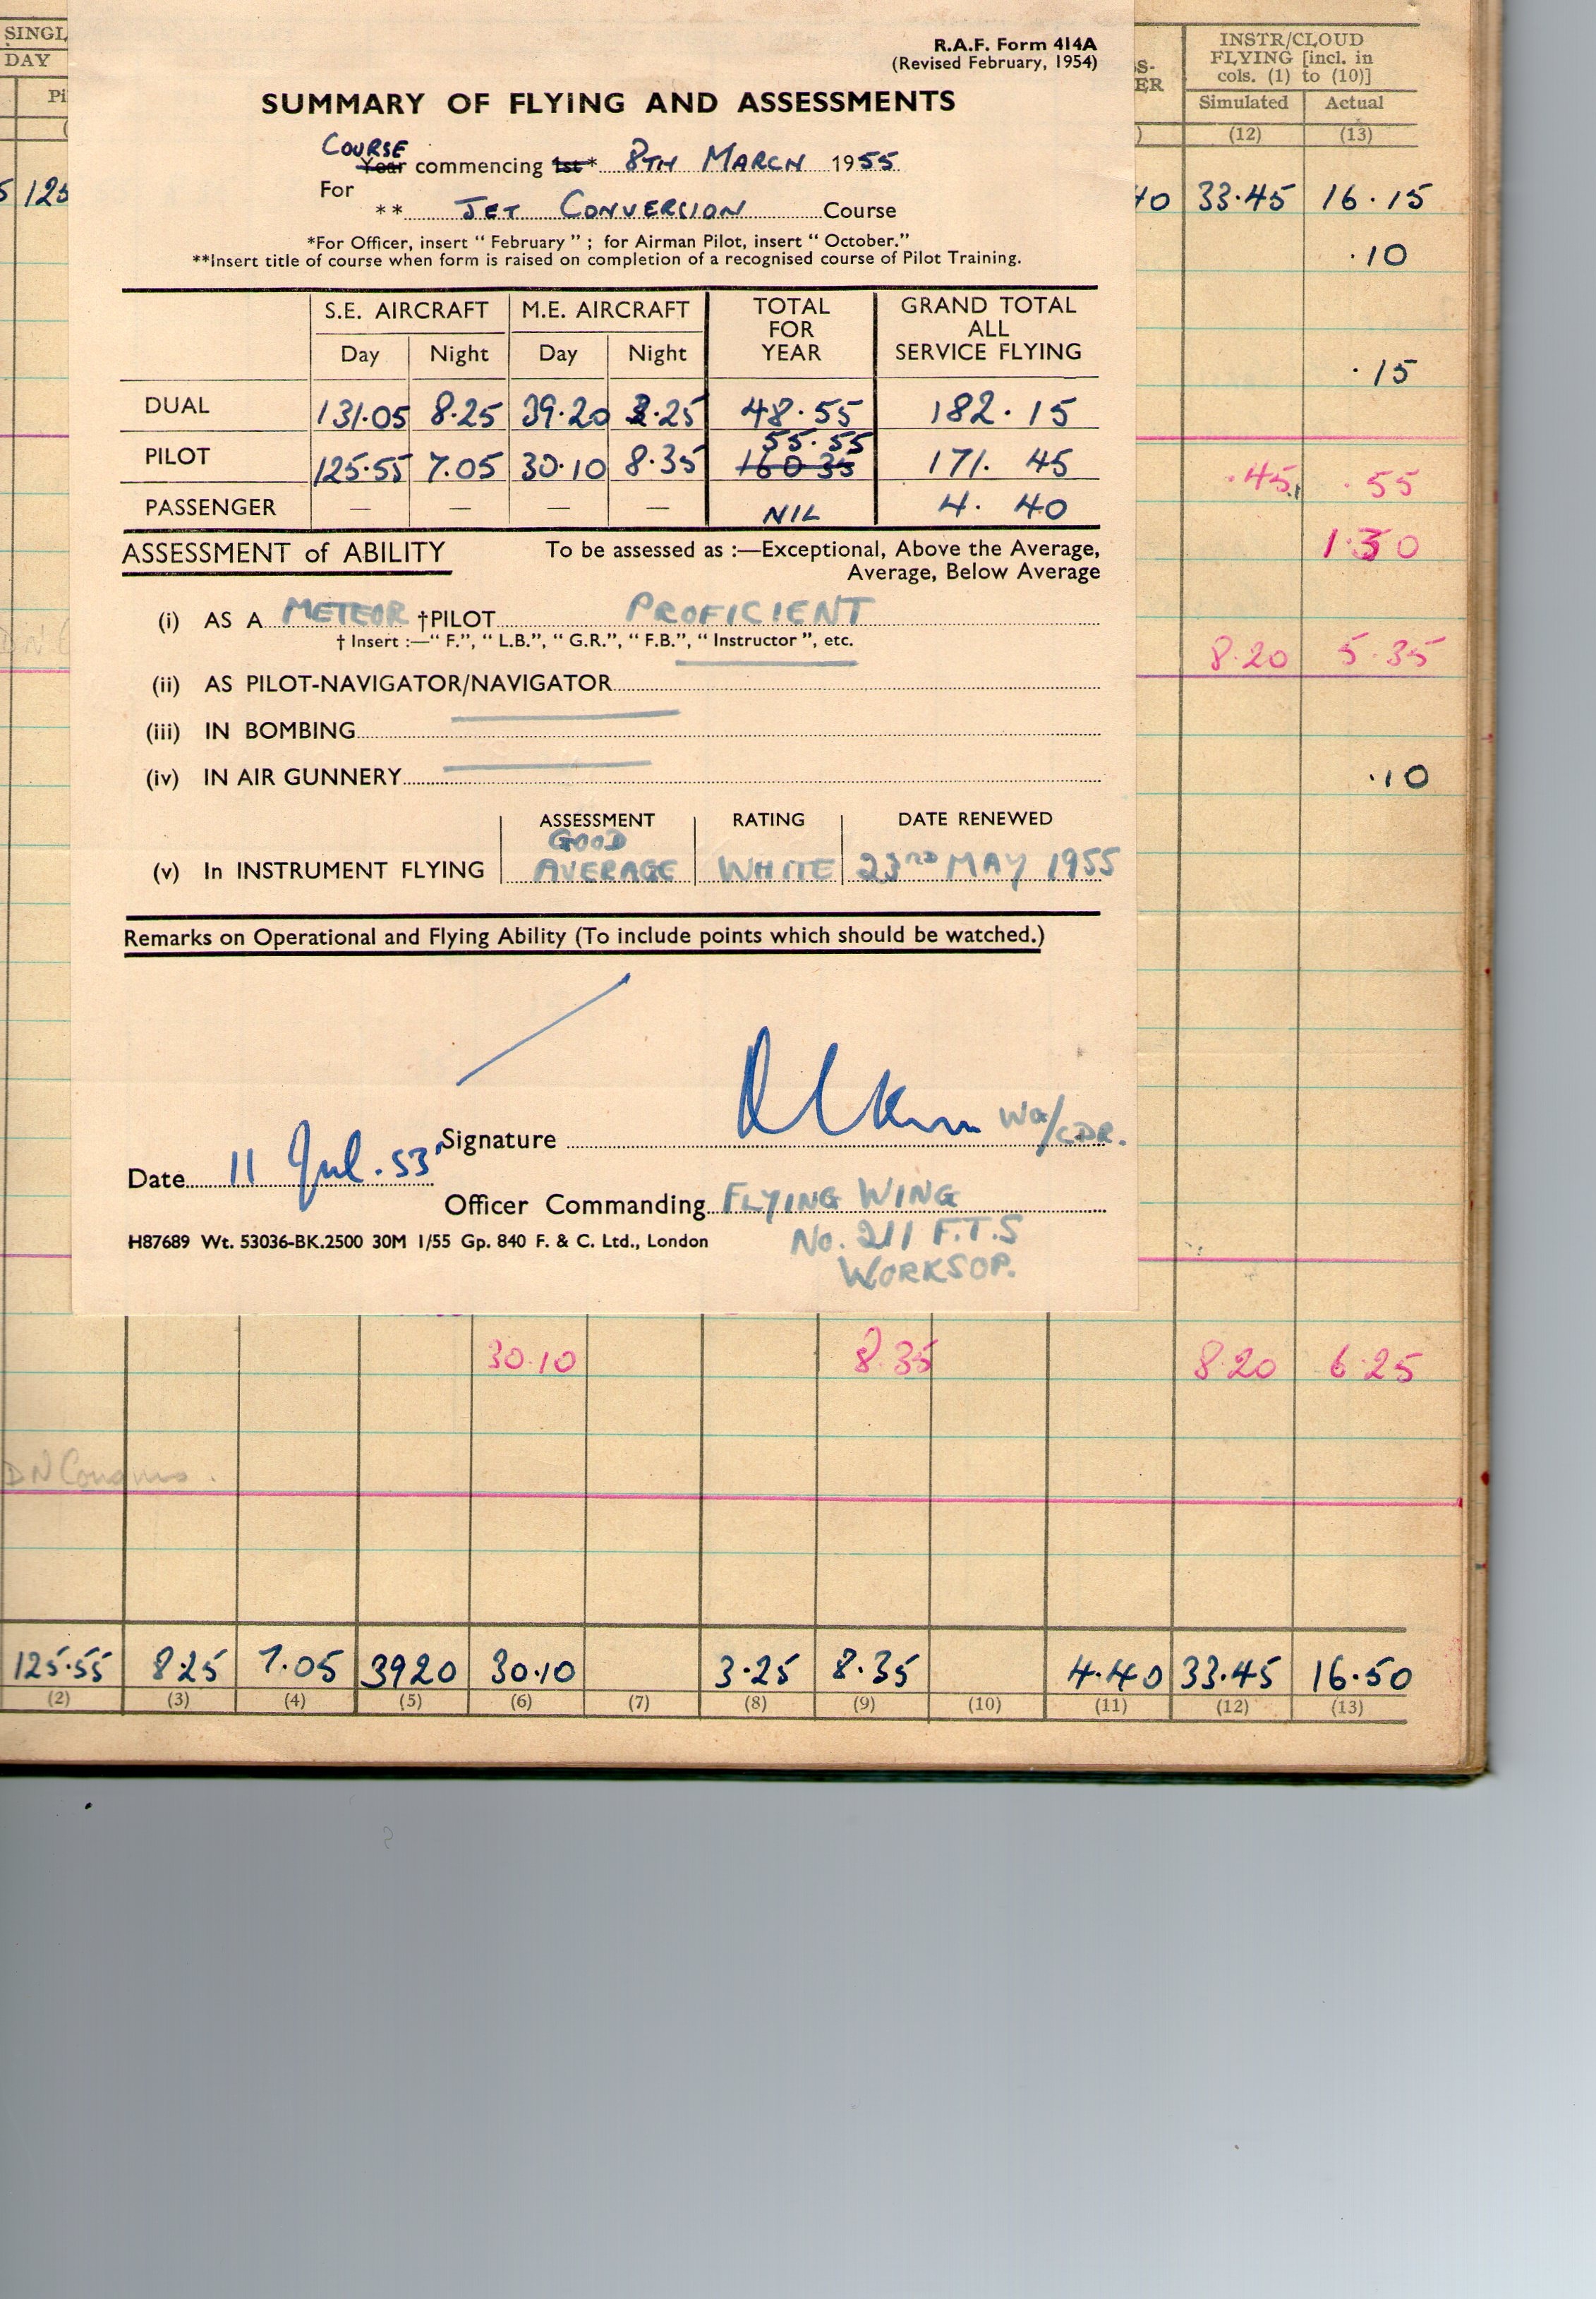 SINGL
DAY
Pi
(
5 125
R.A.F. Form 414A
(Revised February, 1954)
SUMMARY OF FLYING AND ASSESSMENTS
COURSE
Year commencing 1st* 8TH MARCH 1955
For
** JET CONVERSION Course
*For Officer, insert “ February ” ; for Airman Pilot, insert “ October.”
**Insert title of course when form is raised on completion of a recognised course of Pilot Training.
S.E. AIRCRAFT M.E. AIRCRAFT TOTAL FOR YEAR GRAND TOTAL ALL SERVICE FLYING
Day Night Day Night
DUAL 131.05 8.25 39.20 3.25 48.55 182.15
55.55
PILOT 125.55 7.05 30.10 8.35 160 35 171. 45
PASSENGER — — — — NIL 4. 40
ASSESSMENT of ABILITY To be assessed as :—Exceptional, Above the Average,
Average, Below Average
(i) AS A METEOR †PILOT PROFICIENT
† Insert :—“ F.”, “ L.B.”, “ G.R.”, “ F.B.”, “ Instructor ”, etc.
(ii) AS PILOT-NAVIGATOR/NAVIGATOR
(iii) IN BOMBING
(iv) IN AIR GUNNERY
ASSESSMENT RATING DATE RENEWED
GOOD
(v) In INSTRUMENT FLYING AVERAGE WHITE 23RD MAY 1955
Remarks on Operational and Flying Ability (To include points which should be watched.)
Signature WG/CDR.
Date 11 Jul. 55
Officer Commanding FLYING WING
No. 211 F.T.S
WORKSOP.
H87689 Wt. 53036-BK.2500 30M 1/55 Gp. 840 F. & C. Ltd., London
S-
ER
)
INSTR/CLOUD
FLYING [incl. in
cols. (1) to (10)]
Simulated Actual
(12) (13)
40 33.45 16.15
.10
.15
.45 .55
1.30
8.20 5.35
.10
30.10 8.35 8.20 6.25
125.55 8.25 7.05 3920 30.10 3.25 8.35 4.40 33.45 16.50
(2) (3) (4) (5) (6) (7) (8) (9) (10) (11) (12) (13)